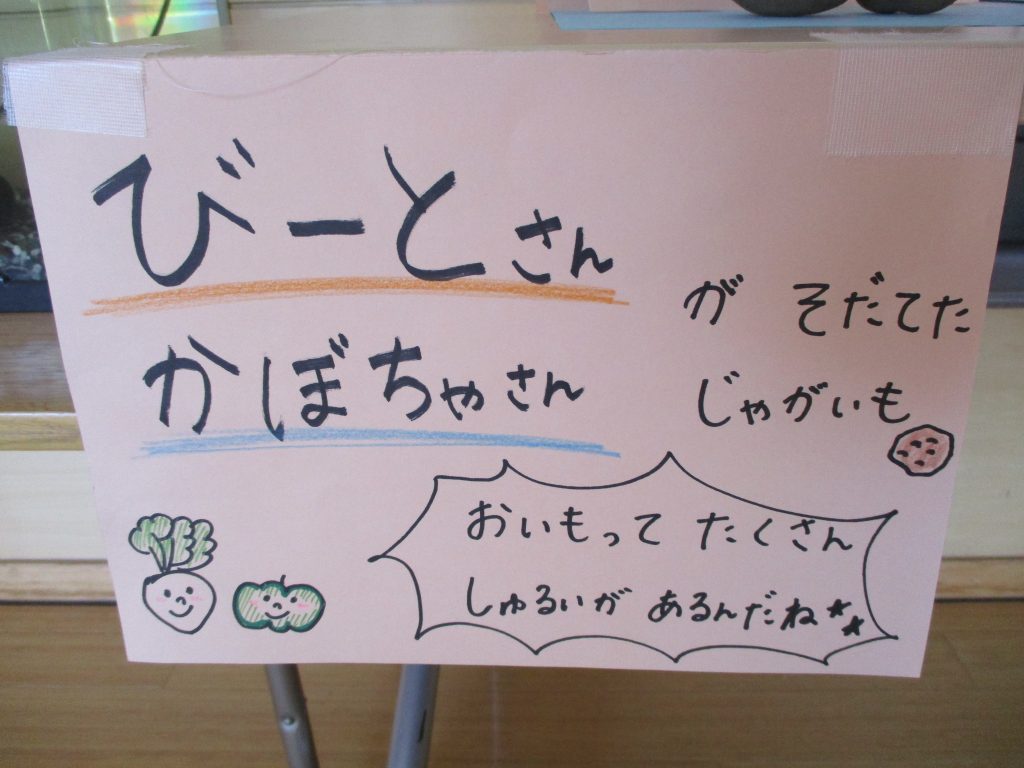 びーとさん
かぼちゃさん
が そだてた
じゃがいも
おいもって たくさん
しゅるいが あるんだね